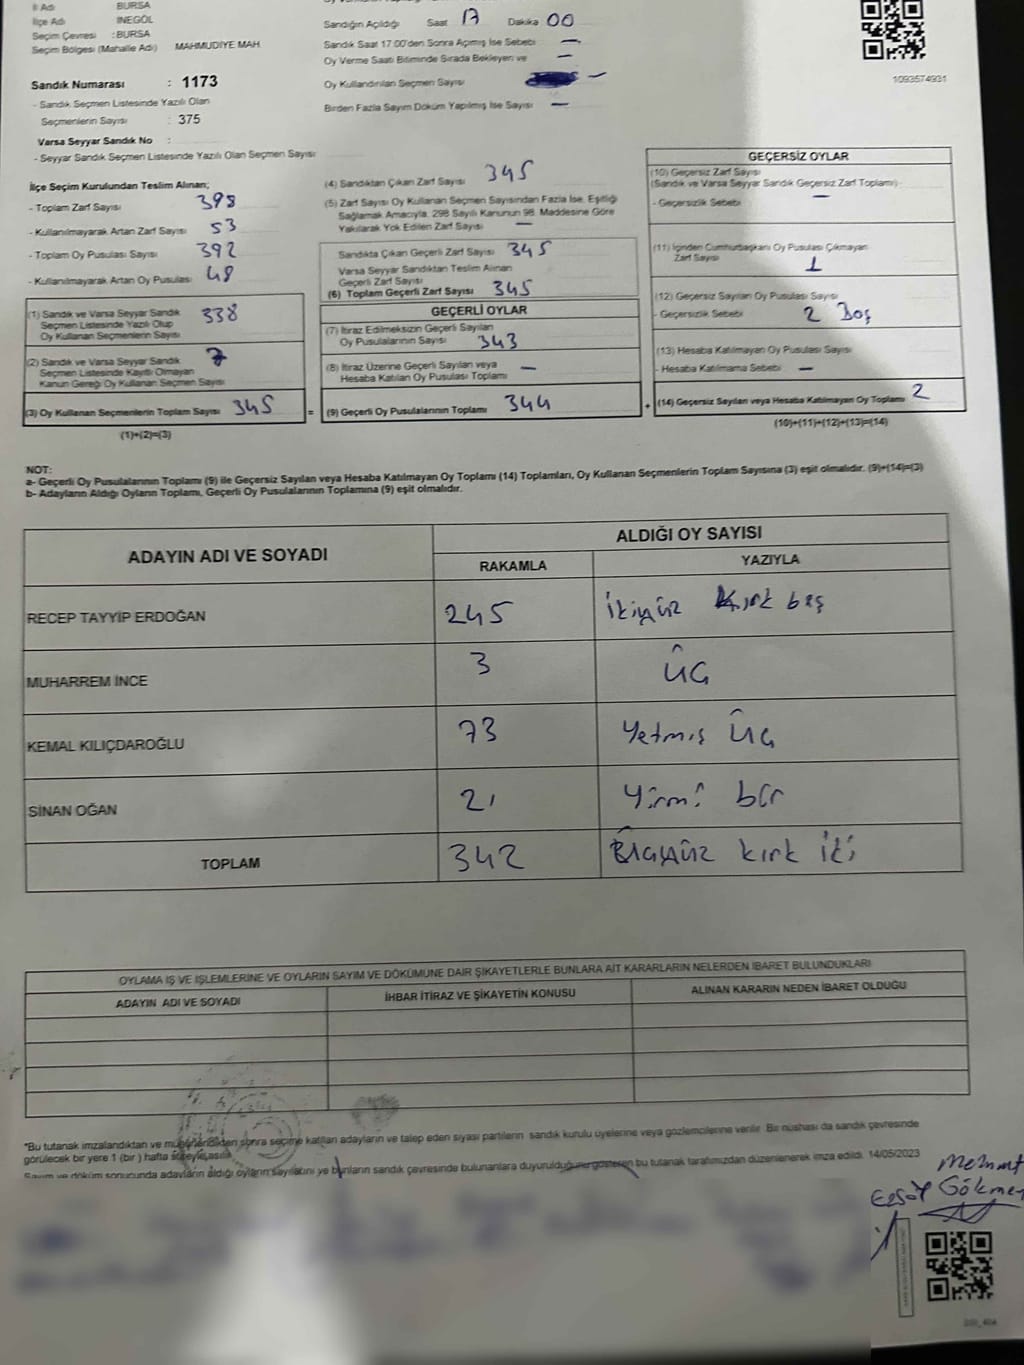 İl Adı BURSA
İlçe Adı İNEGÖL
Seçim Çevresi : BURSA
Seçim Bölgesi (Mahalle Adı) MAHMUDİYE MAH.
Sandık Numarası : 1173
- Sandık Seçmen Listesinde Yazılı Olan
Seçmenlerin Sayısı : 375
Varsa Seyyar Sandık No :
- Seyyar Sandık Seçmen Listesinde Yazılı Olan Seçmen Sayısı
Sandığın Açıldığı Saat 17 Dakika 00
Sandık Saat 17:00'den Sonra Açımış İse Sebebi —
Oy Verme Saati Bitiminde Sırada Bekleyen ve —
Oy Kullandırılan Seçmen Sayısı —
Birden Fazla Sayım Döküm Yapılmış İse Sayısı —
1093574931
İlçe Seçim Kurulundan Teslim Alınan;
- Toplam Zarf Sayısı 398
- Kullanılmayarak Artan Zarf Sayısı 53
- Toplam Oy Pusulası Sayısı 392
- Kullanılmayarak Artan Oy Pusulası 48
(1) Sandık ve Varsa Seyyar Sandık
Seçmen Listesinde Yazılı Olup
Oy Kullanan Seçmenlerin Sayısı 338
(2) Sandık ve Varsa Seyyar Sandık
Seçmen Listesinde Kayıtlı Olmayan
Kanun Gereği Oy Kullanan Seçmen Sayısı 7
(3) Oy Kullanan Seçmenlerin Toplam Sayısı 345
(1)+(2)=(3)
(4) Sandıktan Çıkan Zarf Sayısı 345
(5) Zarf Sayısı Oy Kullanan Seçmen Sayısından Fazla İse, Eşitliği
Sağlamak Amacıyla, 298 Sayılı Kanunun 98. Maddesine Göre
Yakılarak Yok Edilen Zarf Sayısı —
Sandıkta Çıkan Geçerli Zarf Sayısı 345
Varsa Seyyar Sandıktan Teslim Alınan
Geçerli Zarf Sayısı
(6) Toplam Geçerli Zarf Sayısı 345
GEÇERLİ OYLAR
(7) İtiraz Edilmeksizin Geçerli Sayılan
Oy Pusulalarının Sayısı 343
(8) İtiraz Üzerine Geçerli Sayılan veya
Hesaba Katılan Oy Pusulası Toplamı —
= (9) Geçerli Oy Pusulalarının Toplamı 344
GEÇERSİZ OYLAR
(10) Geçersiz Zarf Sayısı
(Sandık ve Varsa Seyyar Sandık Geçersiz Zarf Toplamı) —
- Geçersizlik Sebebi
(11) İçinden Cumhurbaşkanı Oy Pusulası Çıkmayan
Zarf Sayısı 1
(12) Geçersiz Sayılan Oy Pusulası Sayısı
- Geçersizlik Sebebi 2 Boş
(13) Hesaba Katılmayan Oy Pusulası Sayısı
- Hesaba Katılmama Sebebi —
+ (14) Geçersiz Sayılan veya Hesaba Katılmayan Oy Toplamı 2
(10)+(11)+(12)+(13)=(14)
NOT:
a- Geçerli Oy Pusulalarının Toplamı (9) ile Geçersiz Sayılan veya Hesaba Katılmayan Oy Toplamı (14) Toplamları, Oy Kullanan Seçmenlerin Toplam Sayısına (3) eşit olmalıdır. (9)+(14)=(3)
b- Adayların Aldığı Oyların Toplamı, Geçerli Oy Pusulalarının Toplamına (9) eşit olmalıdır.
ADAYIN ADI VE SOYADI ALDIĞI OY SAYISI
RAKAMLA YAZIYLA
RECEP TAYYİP ERDOĞAN 245 İkiyüz Kırk beş
MUHARREM İNCE 3 Üç
KEMAL KILIÇDAROĞLU 73 Yetmiş Üç
SİNAN OĞAN 21 Yirmi bir
TOPLAM 342 Üçyüz kırk iki
OYLAMA İŞ VE İŞLEMLERİNE VE OYLARIN SAYIM VE DÖKÜMÜNE DAİR ŞİKAYETLERLE BUNLARA AİT KARARLARIN NELERDEN İBARET BULUNDUKLARI
ADAYIN ADI VE SOYADI İHBAR İTİRAZ VE ŞİKAYETİN KONUSU ALINAN KARARIN NEDEN İBARET OLDUĞU
*Bu tutanak imzalandıktan ve mühürlendikten sonra seçime katılan adayların ve talep eden siyasi partilerin sandık kurulu üyelerine veya gözlemcilerine verilir. Bir nüshası da sandık çevresinde
görülecek bir yere 1 (bir) hafta süreyle asılır.
Sayım ve döküm sonucunda adayların aldığı oyların sayılarını ve bunların sandık çevresinde bulunanlara duyurulduğunu gösteren bu tutanak tarafımızdan düzenlenerek imza edildi. 14/05/2023
Mehmet
Gökmen